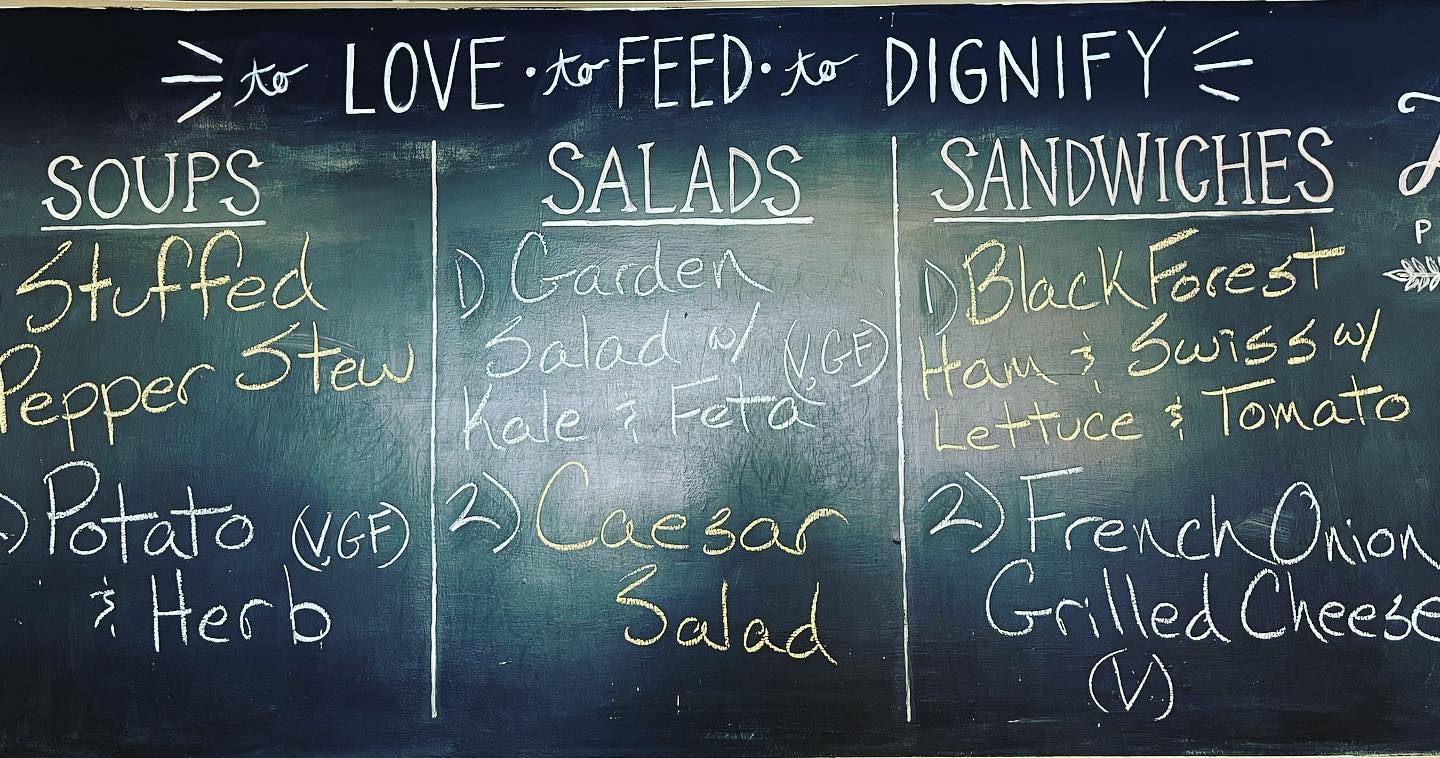 to LOVE · to FEED · to DIGNIFY
SOUPS
Stuffed
Pepper Stew
) Potato (V,GF)
& Herb
SALADS
1) Garden
Salad w/ (V,GF)
Kale & Feta
2) Caesar
Salad
SANDWICHES
1) Black Forest
Ham & Swiss w/
Lettuce & Tomato
2) French Onion
Grilled Cheese
(V)
P